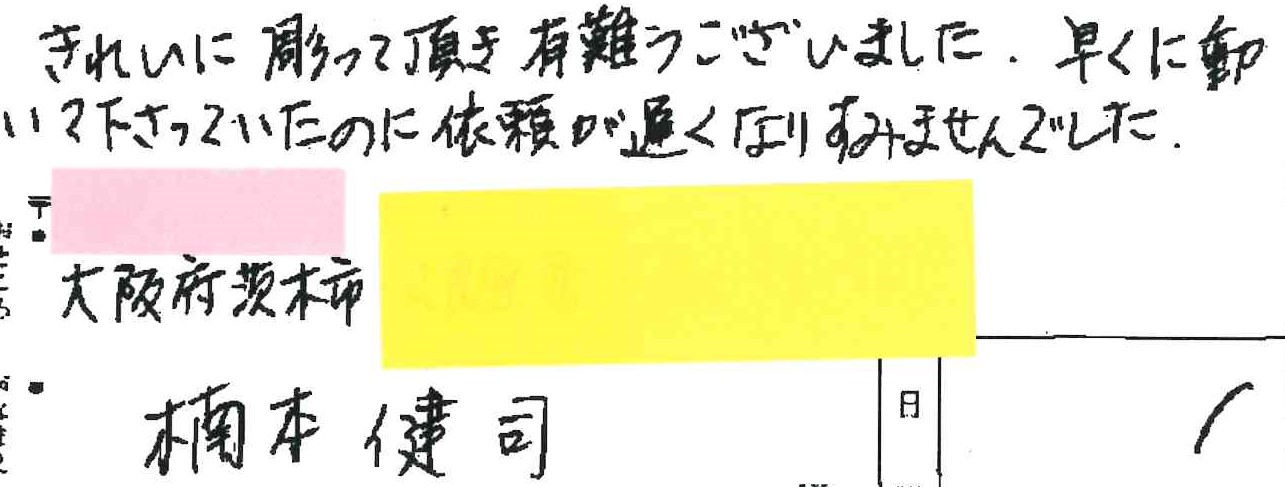 きれいに彫って頂き有難うございました. 早くに動
いて下さっていたのに依頼が遅くなりすみませんでした.
〒
大阪府茨木市
楠本健司
日